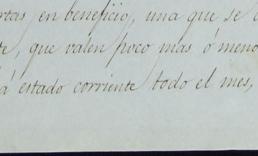 rtas en beneficio, una que se
te, que valen poco mas ó meno
á estado corriente todo el mes,